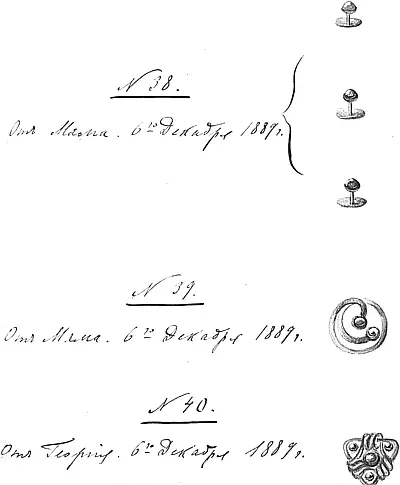 N 38.
Отъ Мама. 6го Декабря 1889г.
N 39.
Отъ Мама. 6го Декабря 1889г.
N 40.
Отъ Георгія. 6го Декабря 1889г.